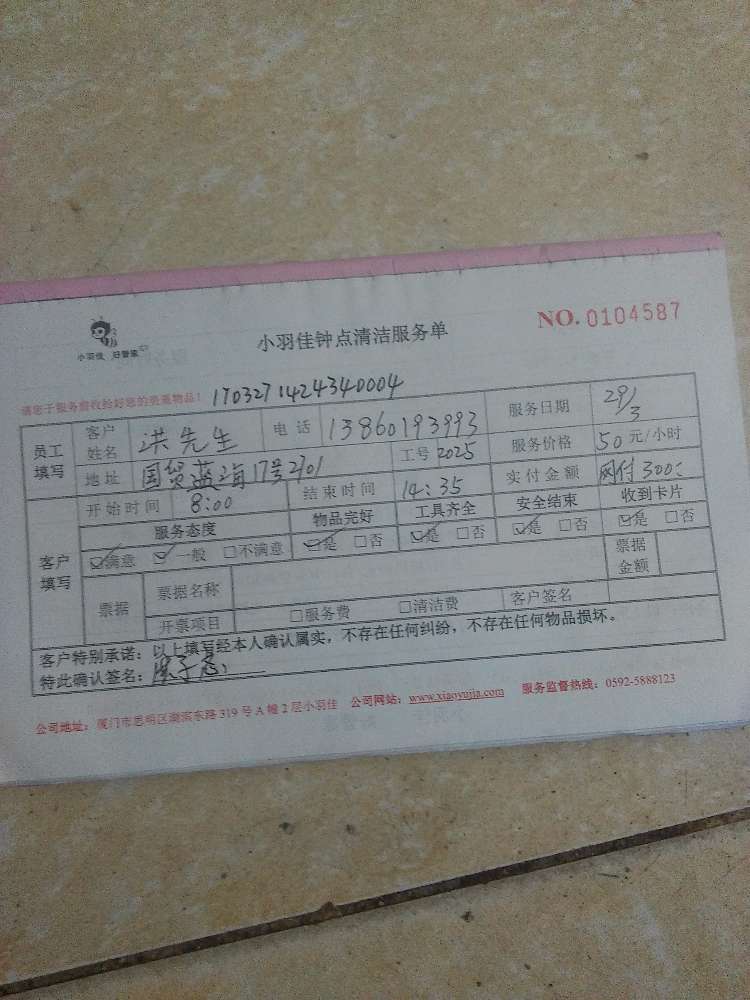 小羽佳 好管家
小羽佳钟点清洁服务单
NO. 0104587
请您于服务前收拾好您的贵重物品! 1703271424340004
员工填写 客户姓名 洪先生 电话 13860193993 服务日期 29/3
地址 国贸蓝海17号2701 工号 2025 服务价格 50 元/小时
客户填写 开始时间 8:00 结束时间 14:35 实付金额 网付300
服务态度 物品完好 工具齐全 安全结束 收到卡片
☑满意 ☑一般 □不满意 ☑是 □否 ☑是 □否 ☑是 □否 ☑是 □否
票据 票据名称 票据金额
开票项目 □服务费 □清洁费 客户签名
客户特别承诺：以上填写经本人确认属实，不存在任何纠纷，不存在任何物品损坏。
特此确认签名：
公司地址：厦门市思明区湖滨东路 319 号 A 幢 2 层小羽佳 公司网站：www.xiaoyujia.com 服务监督热线：0592-5888123